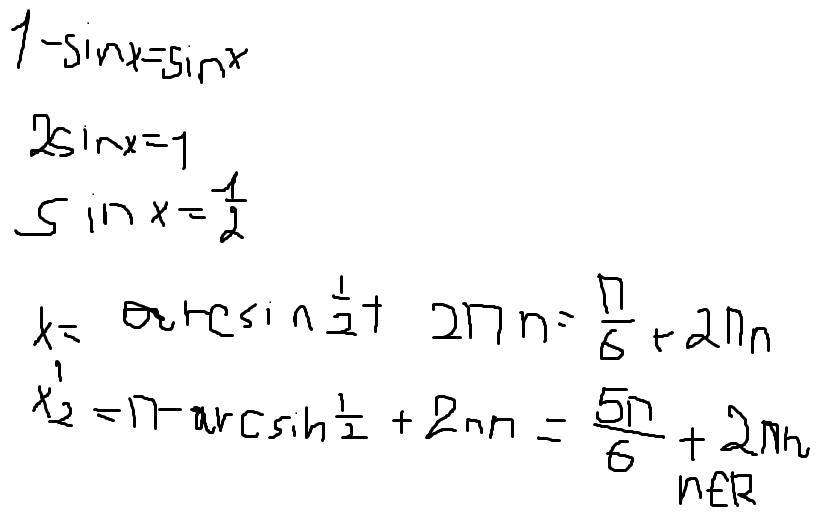 1-sinx=sinx
2sinx=1
sin x=1/2
x= arcsin 1/2 + 2πn= π/6 + 2πn
x'2 =π-arcsin 1/2 + 2πn = 5π/6 + 2πn
n∈R